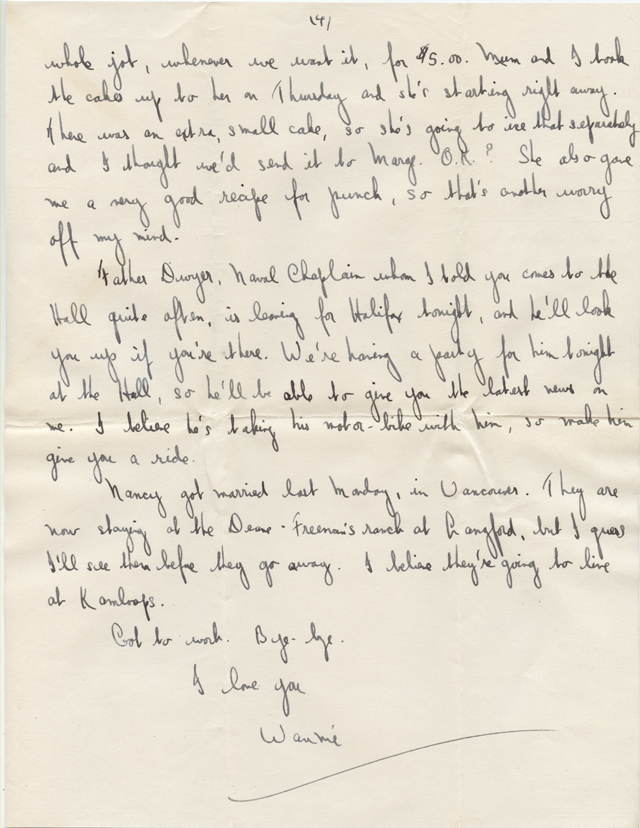 (4)
whole job, whenever we want it, for $5.00. Mum and I took
the cakes up to her on Thursday and she's starting right away.
There was an extra, small cake, so she's going to ice that separately
and I thought we'd send it to Marge. O.K.? She also gave
me a very good recipe for punch, so that's another worry
off my mind.
Father Dwyer, Naval Chaplain whom I told you comes to the
Hall quite often, is leaving for Halifax tonight, and he'll look
you up if you're there. We're having a party for him tonight
at the Hall, so he'll be able to give you the latest news on
me. I believe he's taking his motor-bike with him, so make him
give you a ride.
Nancy got married last Monday, in Vancouver. They are
now staying at the Deane-Freeman's ranch at Langford, but I guess
I'll see them before they go away. I believe they're going to live
at Kamloops.
Got to work. Bye-bye.
I love you